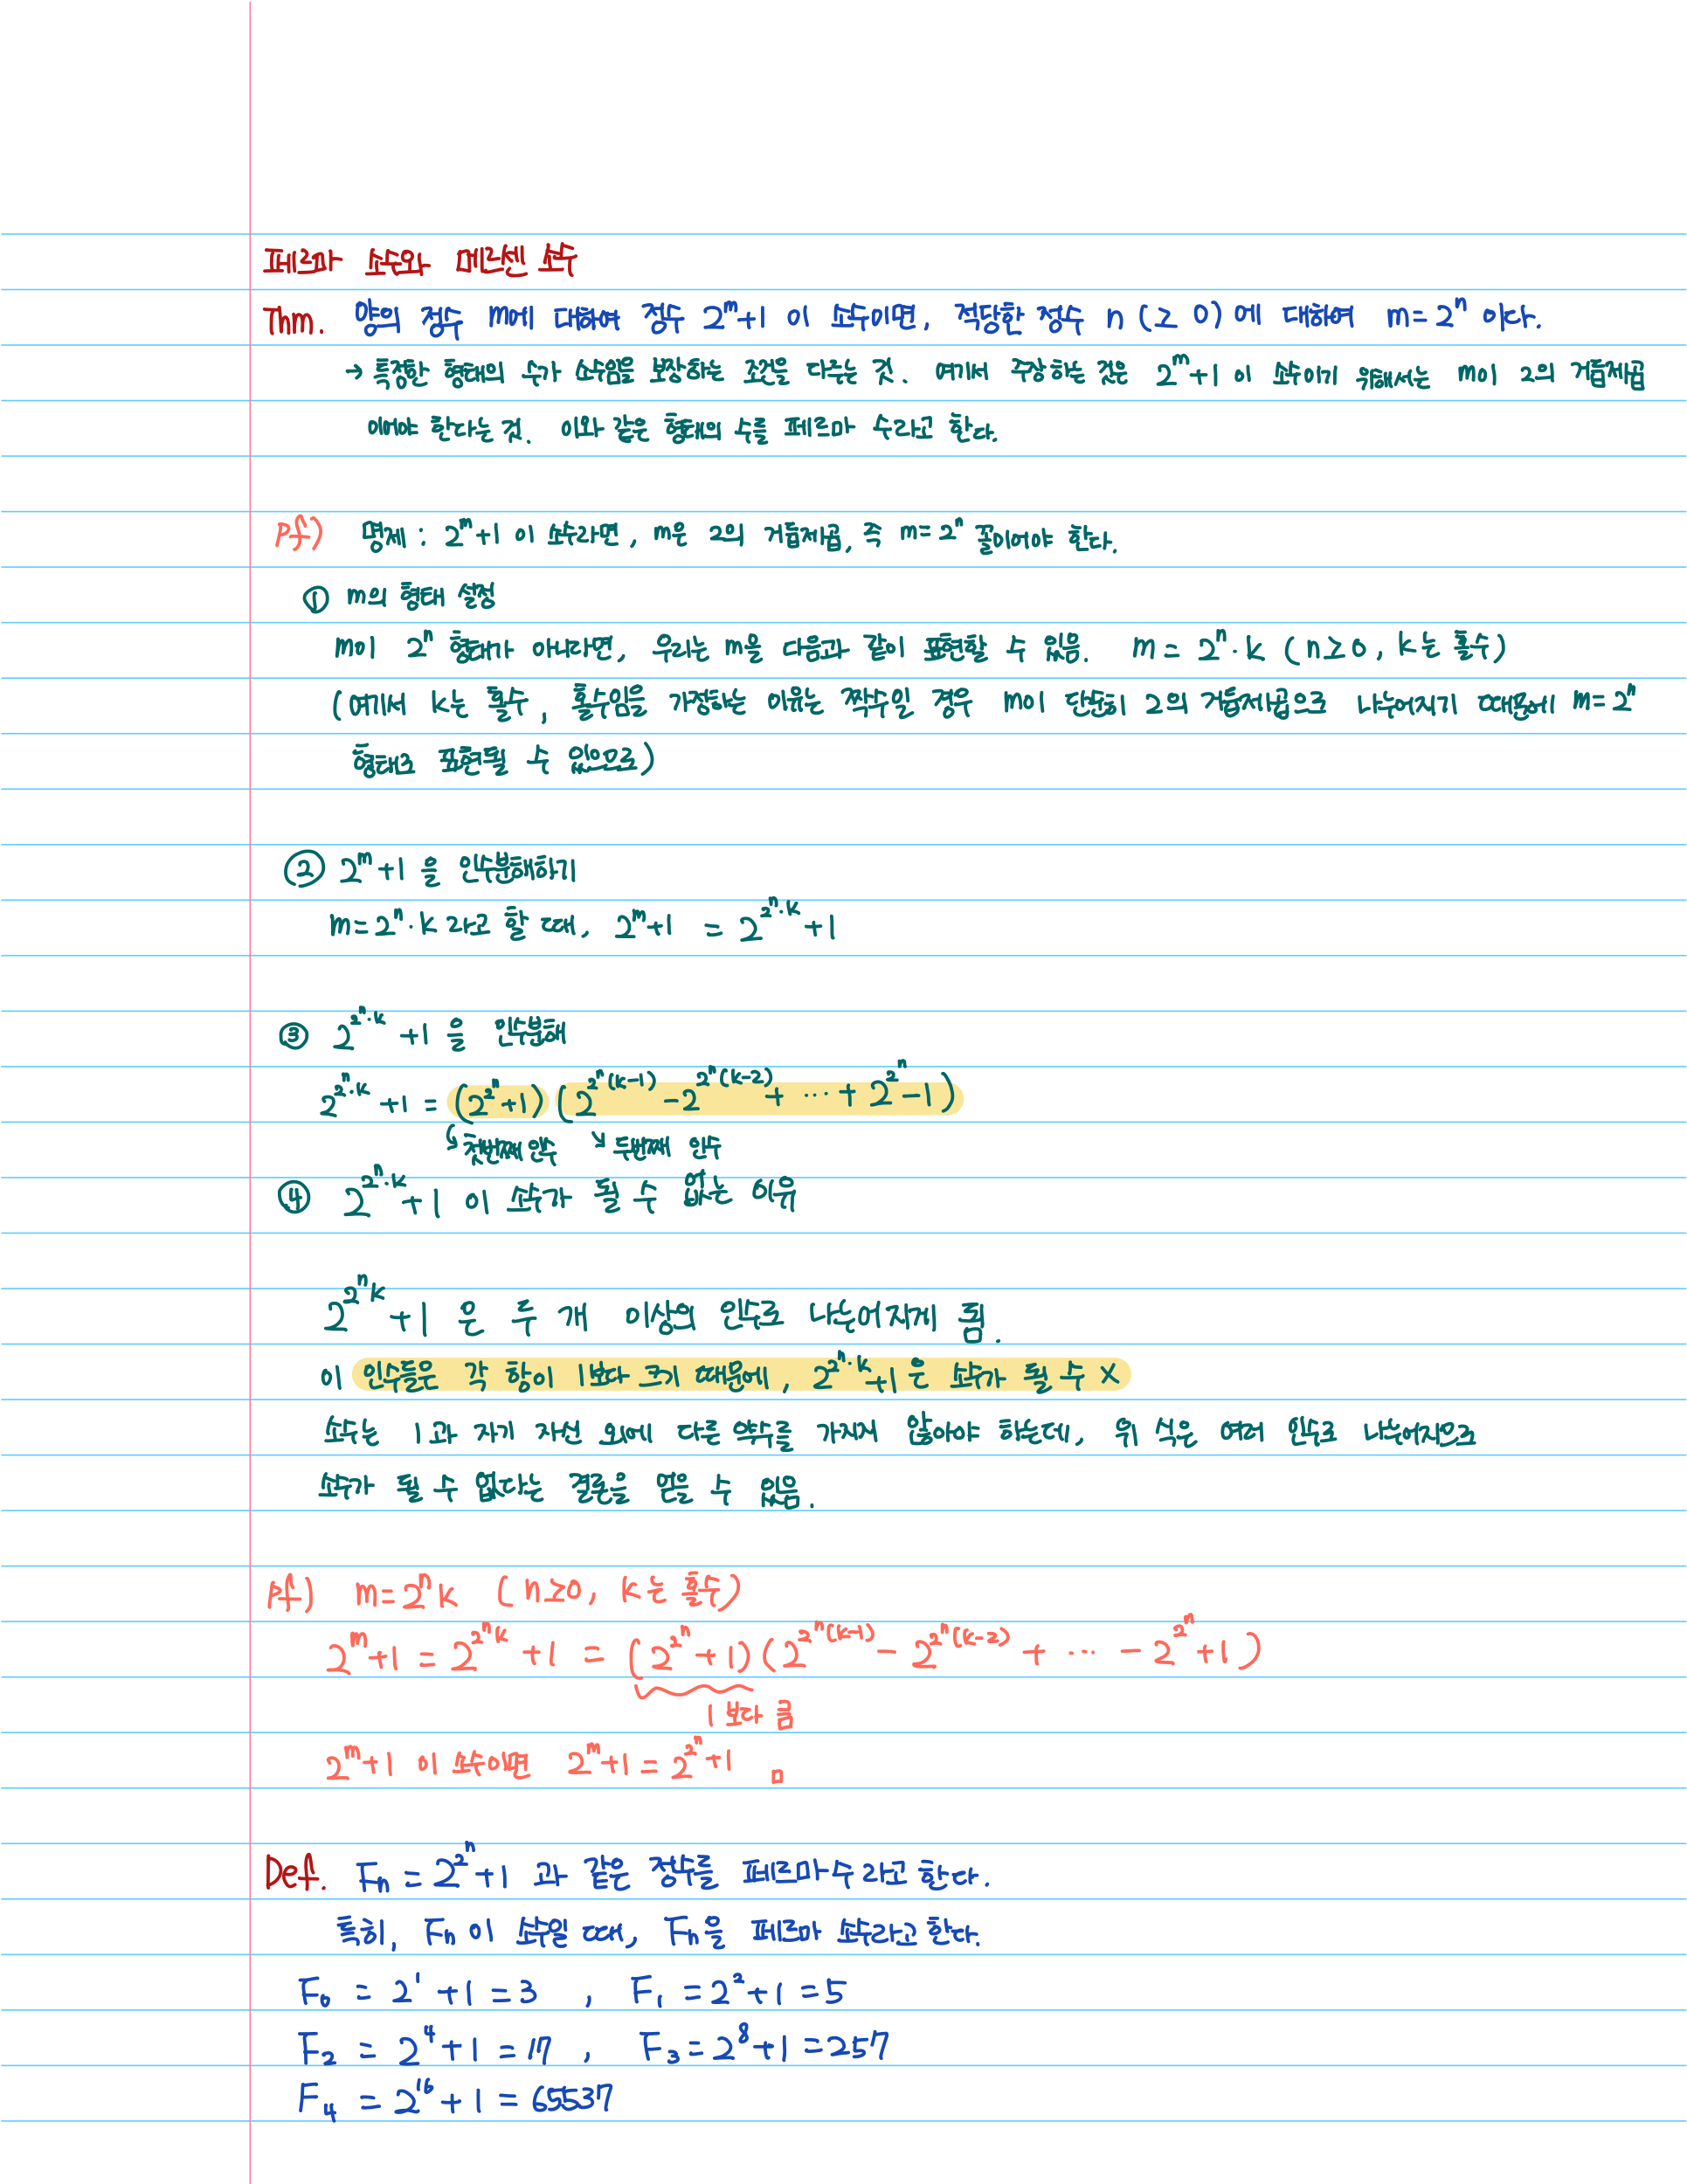 페르마 소수와 메르센 소수
Thm. 양의 정수 m에 대하여 정수 2^m+1 이 소수이면, 적당한 정수 n (≥ 0) 에 대하여 m = 2^n 이다.
→ 특정한 형태의 수가 소수임을 보장하는 조건을 다루는 것. 여기서 주장하는 것은 2^m+1 이 소수이기 위해서는 m이 2의 거듭제곱
이어야 한다는 것. 이와 같은 형태의 수를 페르마 수라고 한다.
pf) 명제 : 2^m+1 이 소수라면, m은 2의 거듭제곱, 즉 m=2^n 꼴이어야 한다.
① m의 형태 설정
m이 2^n 형태가 아니라면, 우리는 m을 다음과 같이 표현할 수 있음. m = 2^n · k (n≥0, k는 홀수)
(여기서 k는 홀수, 홀수임을 가정하는 이유는 짝수일 경우 m이 단순히 2의 거듭제곱으로 나누어지기 때문에 m=2^n
형태로 표현될 수 있으므로)
② 2^m+1 을 인수분해하기
m=2^n · k 라고 할 때, 2^m+1 = 2^{2^n · k}+1
③ 2^{2^n · k} +1 을 인수분해
2^{2^n · k} +1 = (2^{2^n}+1) (2^{2^n(k-1)} - 2^{2^n(k-2)} + ··· + 2^{2^n} - 1)
↳ 첫번째 인수 ↘ 두번째 인수
④ 2^{2^n · k}+1 이 소수가 될 수 없는 이유
2^{2^n k}+1 은 두 개 이상의 인수로 나누어지게 됨.
이 인수들은 각 항이 1보다 크기 때문에, 2^{2^n · k}+1은 소수가 될 수 X
소수는 1과 자기 자신 외에 다른 약수를 가지지 않아야 하는데, 위 식은 여러 인수로 나누어지므로
소수가 될 수 없다는 결론을 얻을 수 있음.
pf) m=2^n k (n≥0, k는 홀수)
2^m+1 = 2^{2^n k} +1 = (2^{2^n} +1) (2^{2^n(k-1)} - 2^{2^n(k-2)} + ··· - 2^{2^n} +1)
1 보다 큼
2^m+1 이 소수이면 2^m+1 = 2^{2^n}+1 □
Def. Fn = 2^{2^n}+1 과 같은 정수를 페르마수라고 한다.
특히, Fn이 소수일 때, Fn을 페르마 소수라고 한다.
F₀ = 2^1 +1 = 3 , F₁ = 2^2+1 = 5
F₂ = 2^4+1 = 17 , F₃ = 2^8+1 = 257
F₄ = 2^16+1 = 65537